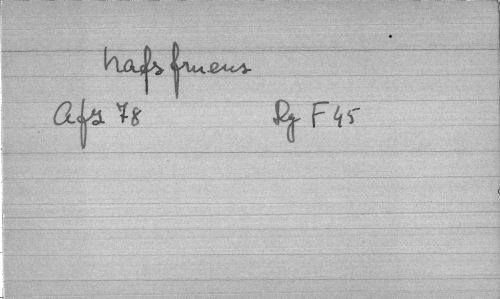 hafsfruens
Afs 78 Rg F 45